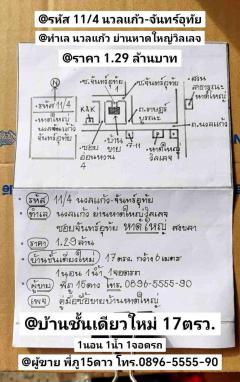 @รหัส 11/4 นวลแก้ว-จันทร์อุทัย
@ทำเล นวลแก้ว ย่านหาดใหญ่วิลเลจ
@ราคา 1.29 ล้านบาท
N
ซ.จันทร์อุทัย 1
ซ.จันทร์อุทัย
รหัส 11/4
หาดใหญ่
นวลแก้ว
จันทร์อุทัย
K&K
บ้าน
ขาย
7-11
หาดใหญ่
วิลเลจ
สวน
สาธารณะ
หาดใหญ่
ถ.นวลแก้ว
รหัส 11/4 นวลแก้ว-จันทร์อุทัย
ทำเล นวลแก้ว ย่านหาดใหญ่วิลเลจ
ซอยจันทร์อุทัย หาดใหญ่ สงขลา
ราคา 1.29 ล้าน
บ้านชั้นเดียวใหม่ 17 ตรว. กว้าง 6 เมตร
1นอน 1น้ำ 1จอดรถ
ผู้ขาย พี่ภู 15ดาว โทร. 0896-5555-90
เพจ คู่มือซื้อขายบ้านหาดใหญ่
@บ้านชั้นเดียวใหม่ 17ตรว.
1นอน 1น้ำ 1จอดรถ
@ผู้ขาย พี่ภู15ดาว โทร.0896-5555-90